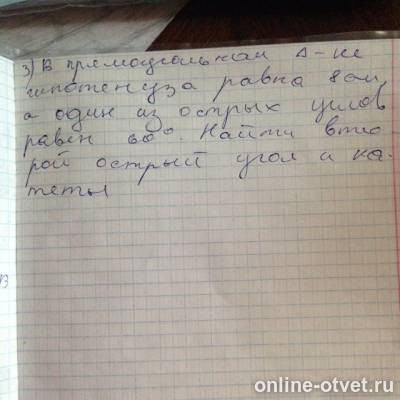 3) В прямоугольном Δ-ке
гипотенуза равна 8см,
а один из острых углов
равен 60°. Найти вто
рой острый угол и ка-
теты
В
online-otvet.ru